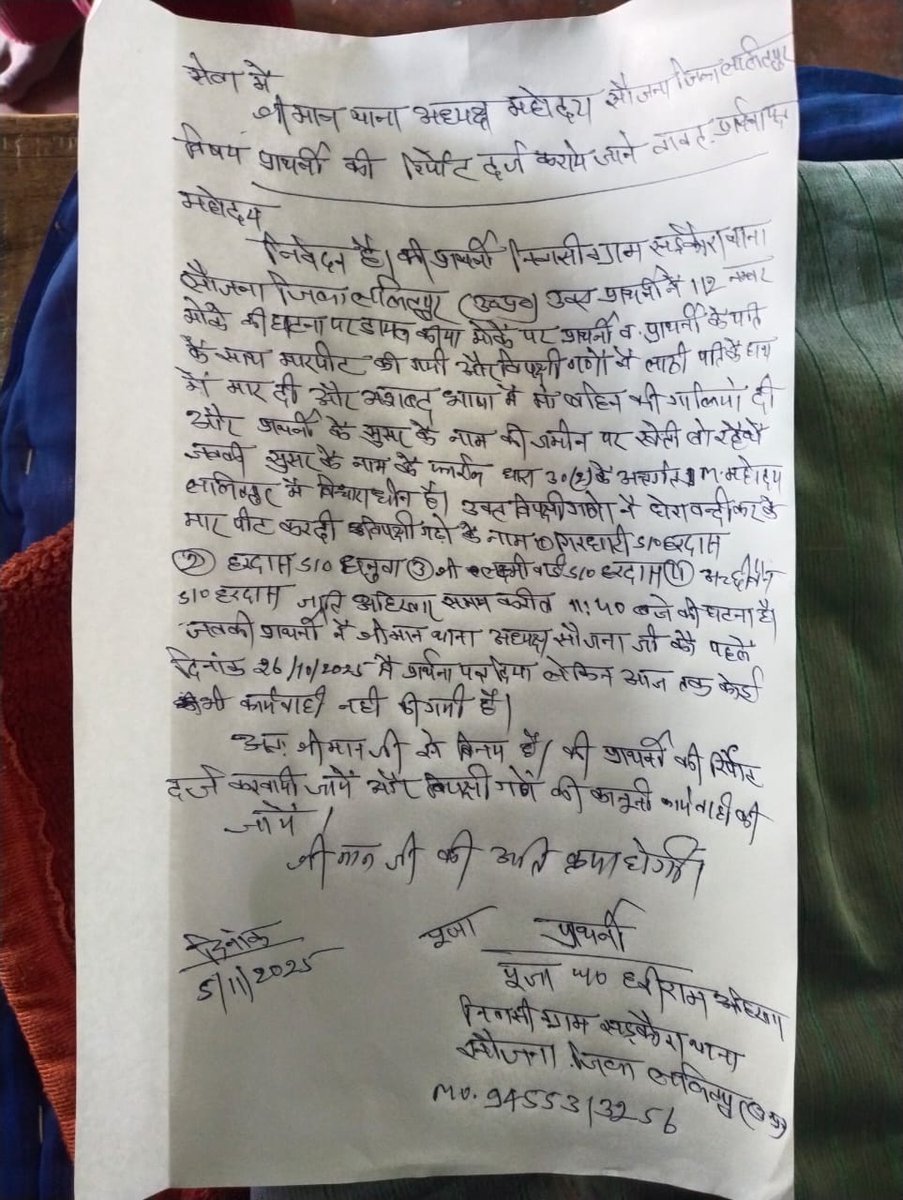 सेवा में
श्रीमान थाना अध्यक्ष महोदय सौजना जिला ललितपुर
विषय प्राथर्नी की रिर्पोट दर्ज कराये जाने बावत प्रार्थनापत्र
महोदय
निवेदन है। की प्राथर्नी निवासी ग्राम खड़कोरा थाना
सौजना जिला ललितपुर (उ०प्र०) उक्त प्राथर्नी ने 112 नम्बर
मौके की घटना पर डायल कीया मौके पर प्राथर्नी व प्राथर्नी के पति
के साथ मारपीट की गयी और विपक्षी गणों ने लाठी पति के हाथ
में मार दी और अशब्द भाषा में मां बहिन की गालियां दी
और प्राथर्नी के सुसर के नाम की जमीन पर खेती बो रहे थे
जबकी सुसर के नाम के धारा 30(2) के अर्न्तगत महोदय
ललितपुर में विचाराधीन है। उक्त विपक्षी गणों ने घेरा बन्दी कर के
मार पीट कर दी विपक्षी गणों के नाम ① गिरधारी S/O हरदास
② हरदास S/O धनुवा ③ श्री लक्ष्मीबाई D/O हरदास
S/O हरदास जाति अहिरवार समय करीब 11:40 बजे की घटना है।
जबकी प्राथर्नी ने श्रीमान थाना अध्यक्ष सौजना जी को पहले
दिनांक 26/10/2025 में प्रार्थना पत्र दिया लेकिन आज तक कोई
भी कार्यवाही नही की गयी है।
अतः श्रीमान जी से विनय है। की प्राथर्नी की रिर्पोट
दर्ज करवायी जायें और विपक्षी गणों की कानूनी कार्यवाही की
जायें।
श्री मान जी की अति कृपा होगी।
दिनांक
5/11/2025
पूजा प्राथर्नी
पूजा W/O हरीराम अहिरवार
निवासी ग्राम खड़कोरा थाना
सौजना जिला ललितपुर (उ०प्र०)
MO. 9455313256